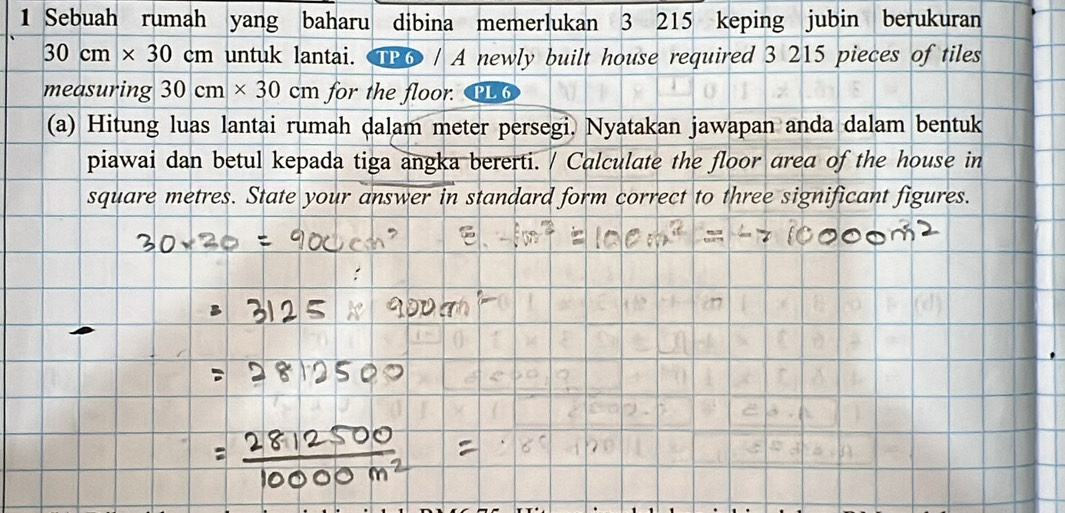 1 Sebuah rumah yang baharu dibina memerlukan 3 215 keping jubin berukuran
30 cm × 30 cm untuk lantai. TP 6 / A newly built house required 3 215 pieces of tiles
measuring 30 cm × 30 cm for the floor. PL 6
(a) Hitung luas lantai rumah dalam meter persegi. Nyatakan jawapan anda dalam bentuk
piawai dan betul kepada tiga angka bererti. / Calculate the floor area of the house in
square metres. State your answer in standard form correct to three significant figures.
30 × 30 = 900 cm² = 10000m²
= 3125 × 900 cm²
= 2812500
= 2812500 =
10000 m²